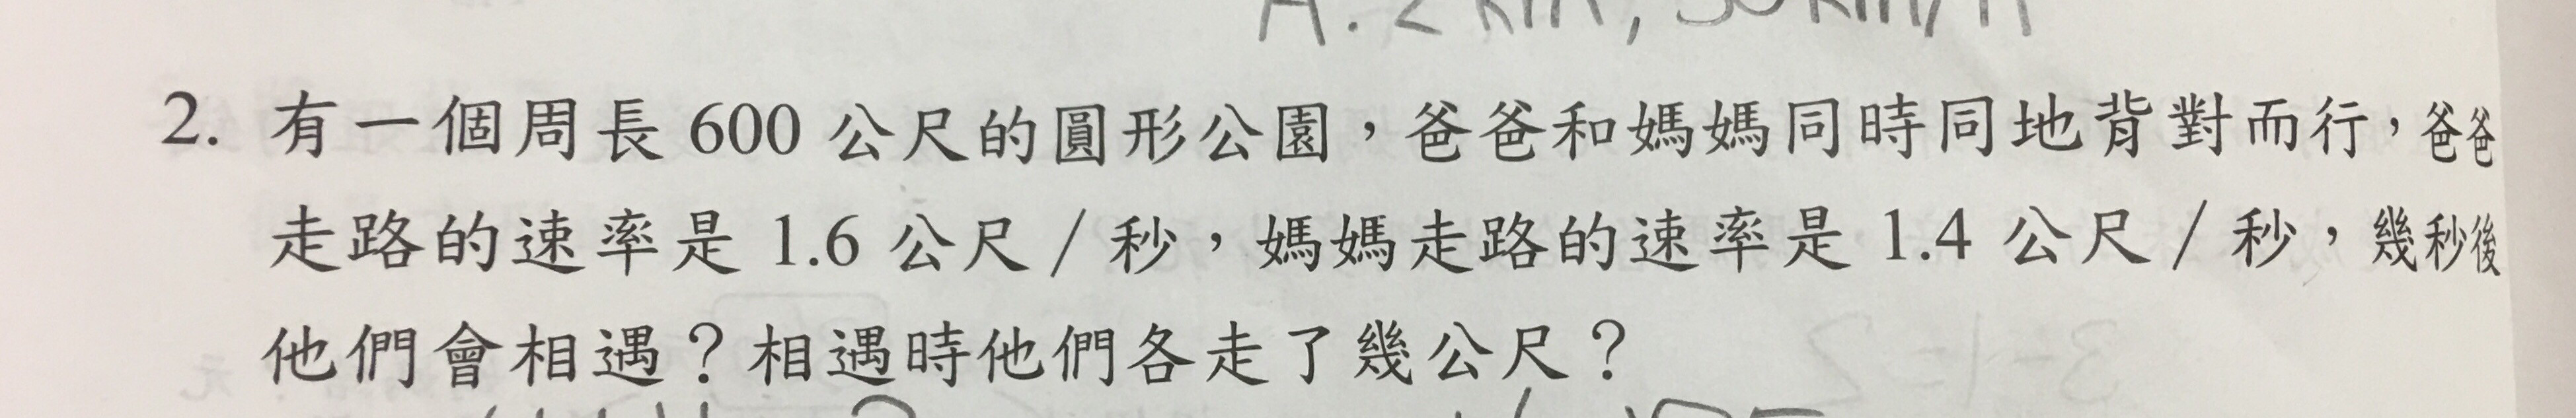 A. 2 km, 30 km/h
2. 有一個周長 600 公尺的圓形公園，爸爸和媽媽同時同地背對而行，爸爸
走路的速率是 1.6 公尺/秒，媽媽走路的速率是 1.4 公尺/秒，幾秒後
他們會相遇？相遇時他們各走了幾公尺？